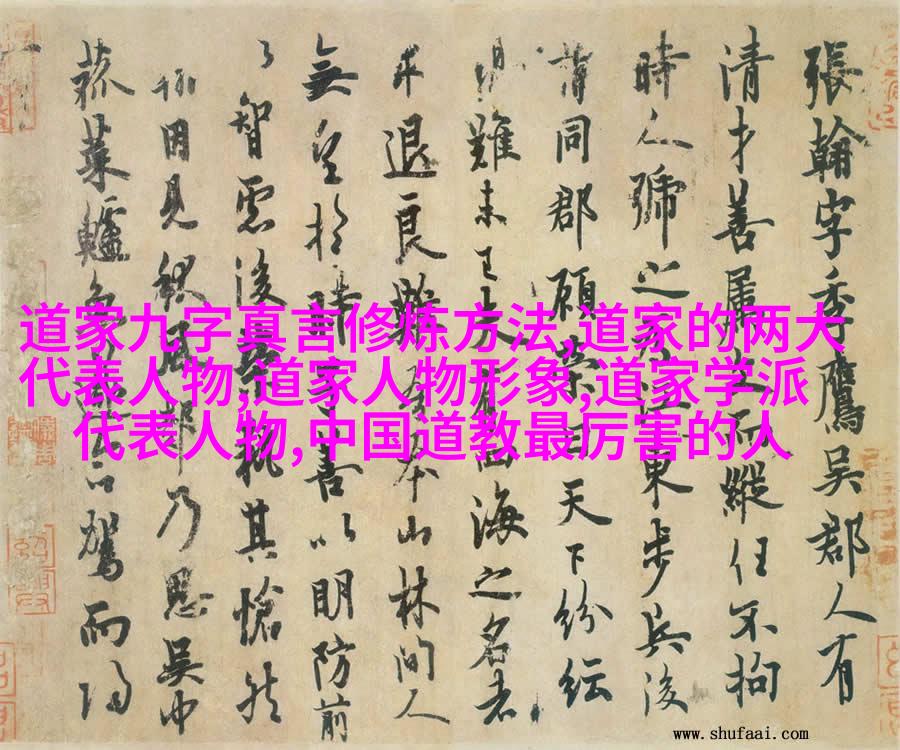 張翰字季鷹吳郡人有
清才善屬文而縱任不拘
時人號之為江東步兵後
同郡顧榮曰天下紛紜
難未已夫有四海之名者
求退良難吾本山林間人
無望於時子善以明防前
以智慮後榮執其愴然
翰因見秋風起乃思吳中
菰菜鱸魚遂命駕而歸
道家九字真言修炼方法,道家的两大
代表人物,道家人物形象,道家学派
代表人物,中国道教最厉害的人
www.shufaai.com